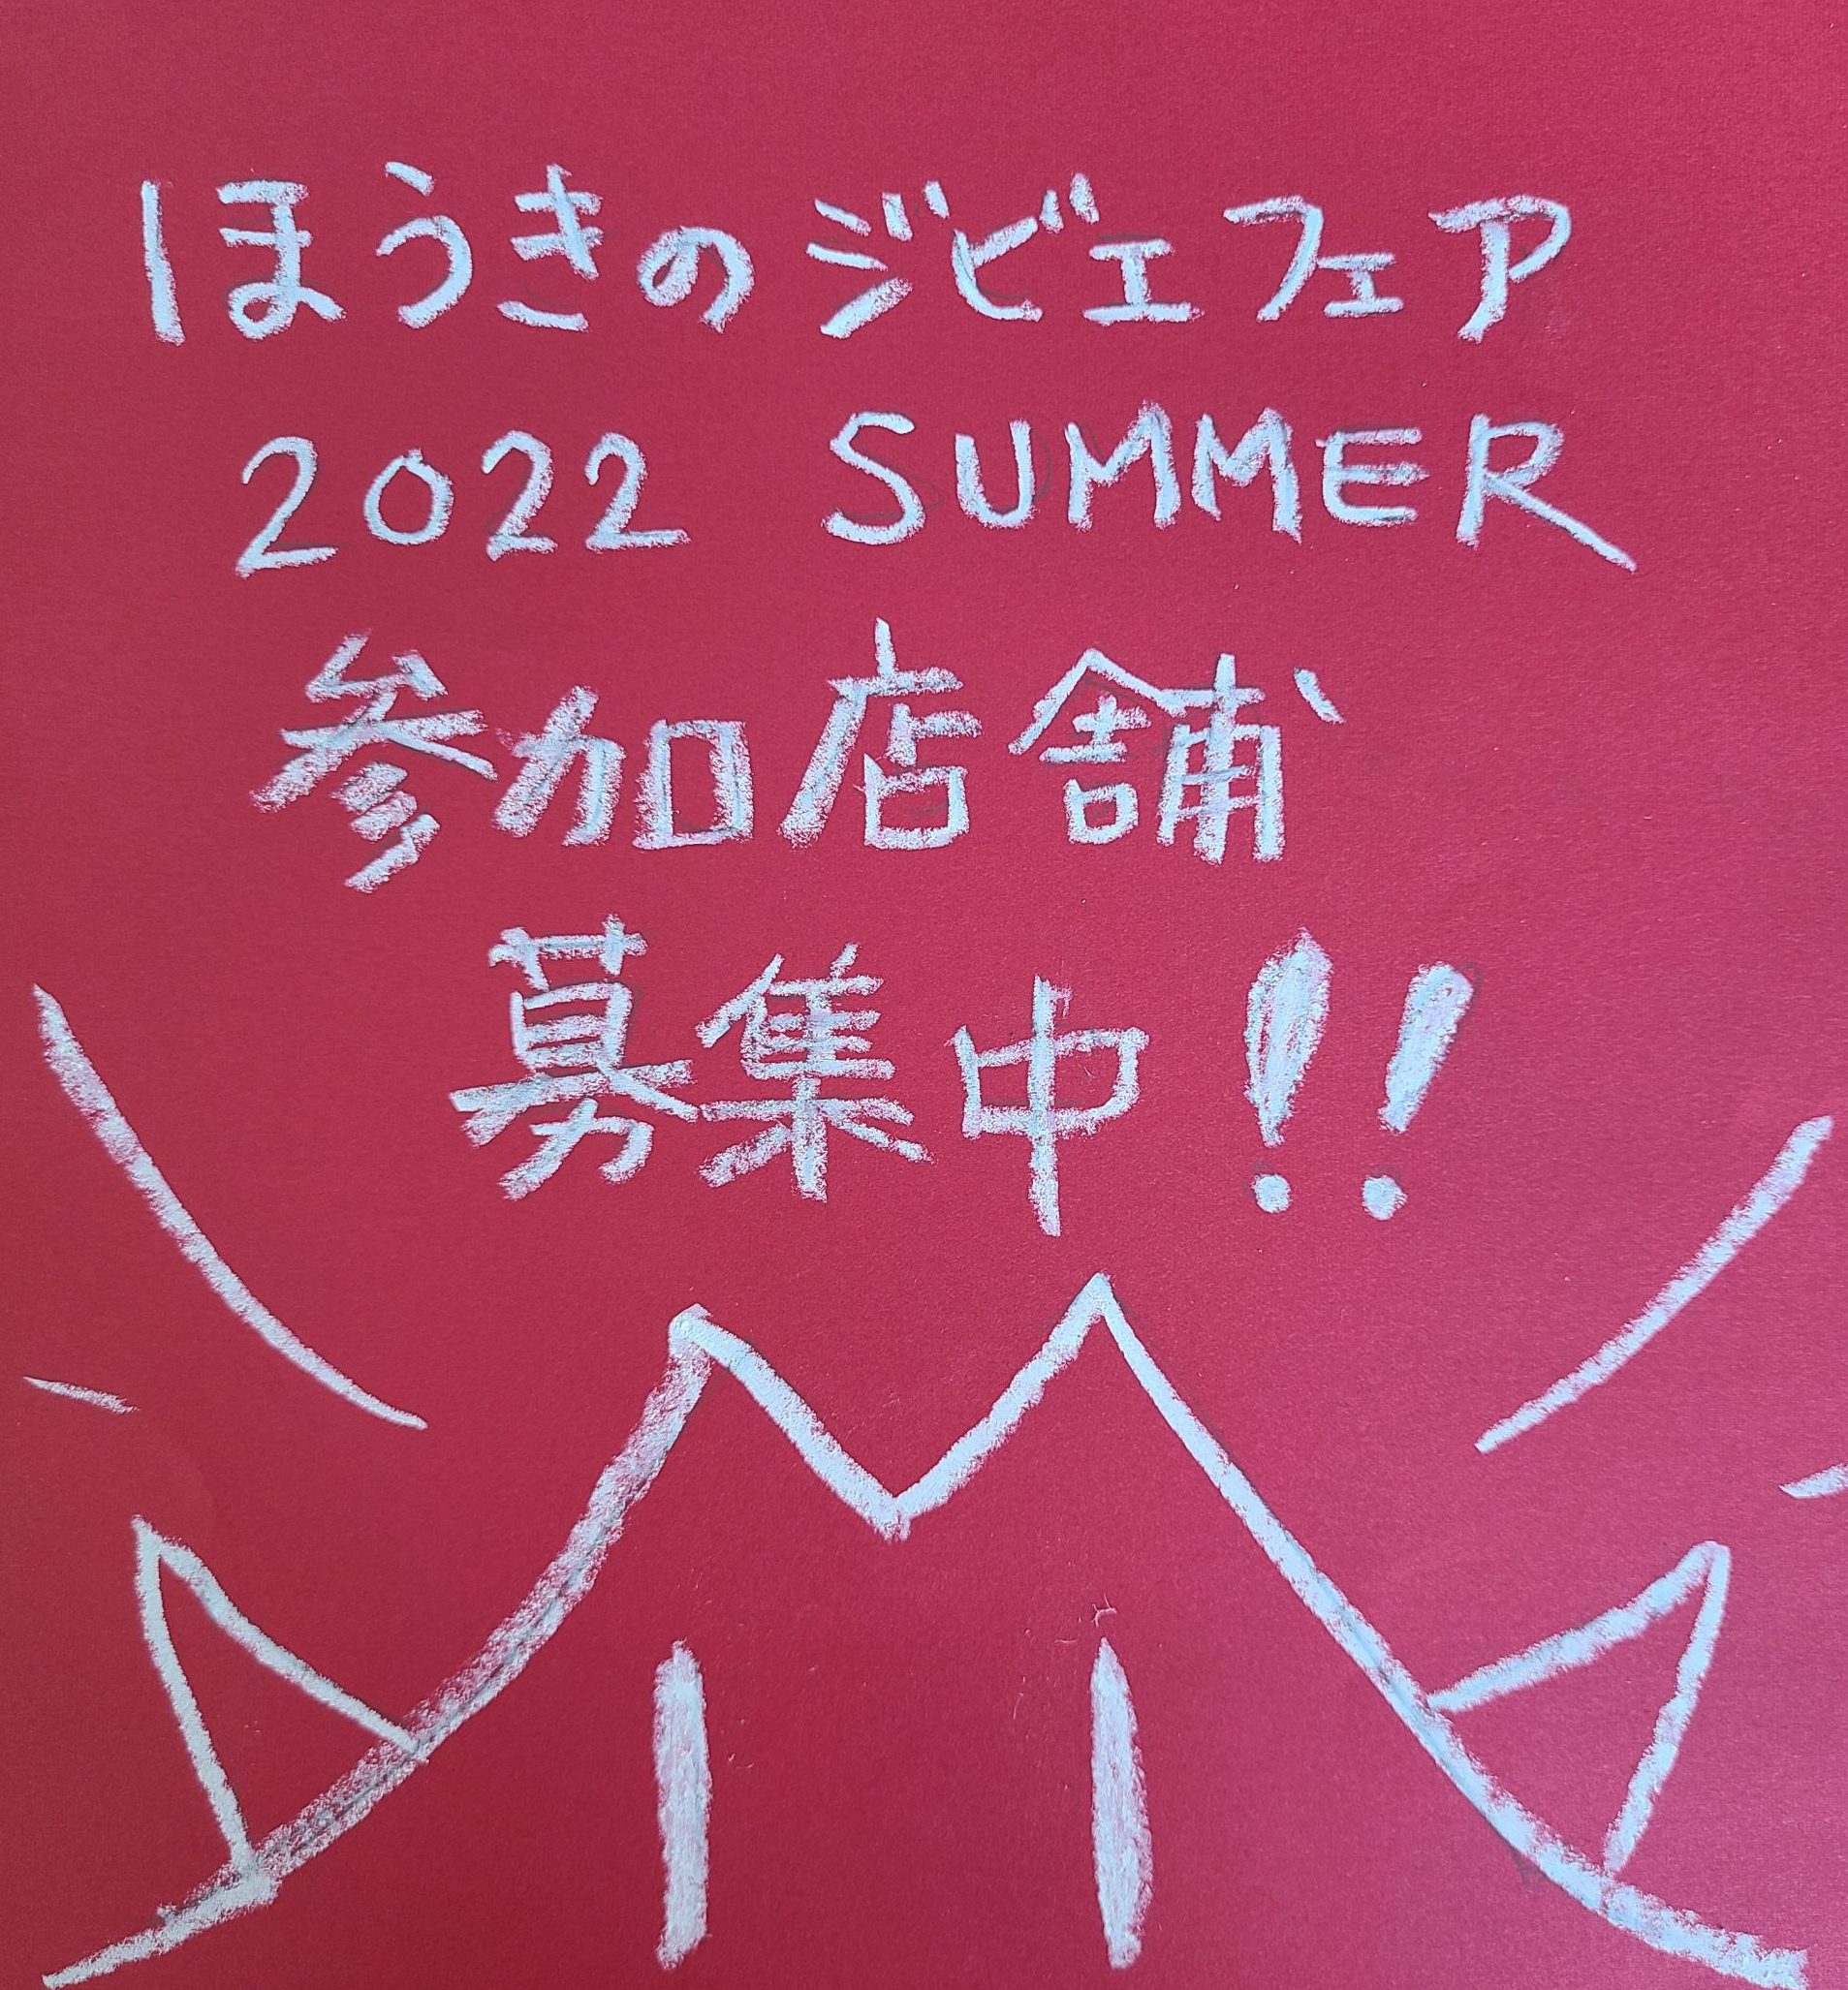 ほうきのジビエフェア
2022 SUMMER
参加店舗
募集中!!